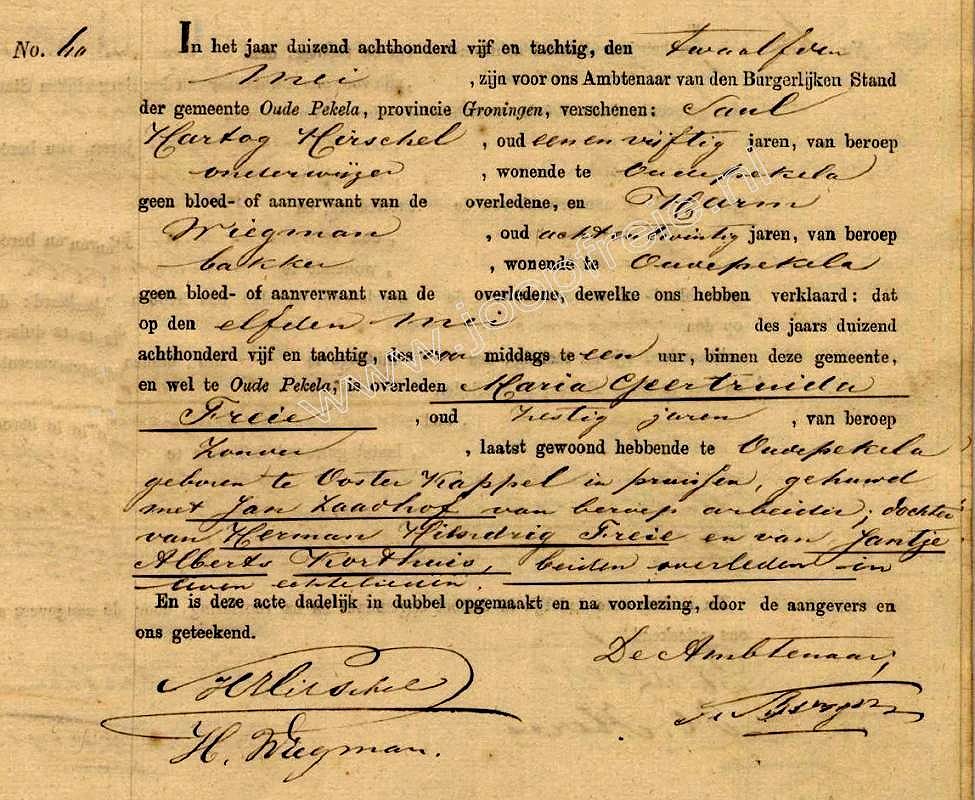 No. 60 In het jaar duizend achthonderd vijf en tachtig, den twaalfden
Mei , zijn voor ons Ambtenaar van den Burgerlijken Stand
der gemeente Oude Pekela, provincie Groningen, verschenen: Saul
Hartog Hirschel , oud eenenvijftig jaren, van beroep
onderwijzer , wonende te Oudepekela
geen bloed- of aanverwant van de overledene, en Harm
Wiegman , oud achtentwintig jaren, van beroep
bakker , wonende te Oudepekela
geen bloed- of aanverwant van de overledene, dewelke ons hebben verklaard: dat
op den elfden Mei des jaars duizend
achthonderd vijf en tachtig, des voor middags te een uur, binnen deze gemeente,
en wel te Oude Pekela, is overleden Maria Geertruida
Freie , oud zestig jaren , van beroep
zonder , laatst gewoond hebbende te Oudepekela
geboren te Ooster Kappel in pruissen, gehuwd
met Jan Zaadhof van beroep arbeider; dochter
van Herman Freie en van Jantje
Alberts Korthuis, beiden overleden in
leven echtelieden.
En is deze acte dadelijk in dubbel opgemaakt en na voorlezing, door de aangevers en
ons geteekend.
De Ambtenaar,
SHHirschel
H. Wiegman.
www.joopfreie.nl